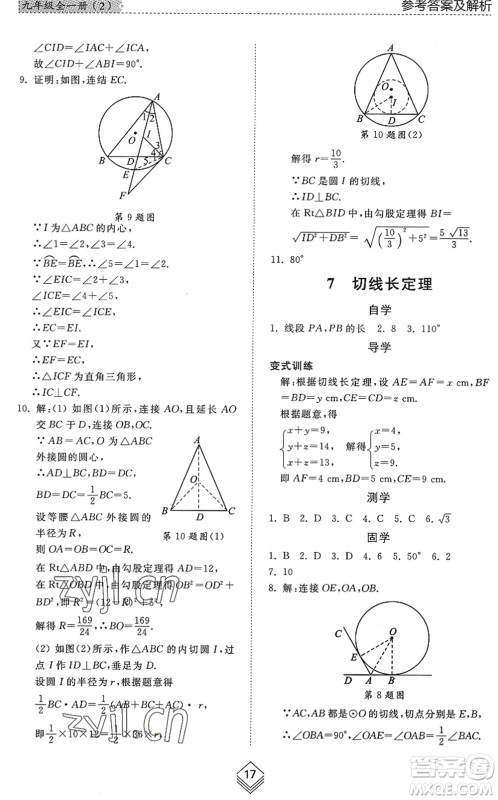 九年级全一册(2)
参考答案及解析
∴∠CID=∠IAC+∠ICA.
故∠CID+∠ABI=90°.
9. 证明:如图,连结 EC.
A
1 2
O
I
3
4
5
B
D
C
E
F
第 9 题图
∵I 为△ABC 的内心,
∴∠1=∠2,∠3=∠4.
∵BE=BE,
∴∠2=∠5.
∵∠EIC=∠2+∠4,
∠ECI=∠3+∠5,
∴∠EIC=∠ECI,
∴EC=EI.
又∵EF=EI,
∴EI=EF=EC.
∴△ICF 为直角三角形,
∴IC⊥CF.
10. 解:(1) 如图(1)所示,连接 AO,且延长 AO
交 BC 于 D,连接 OB,OC.
∵AB=AC,O 为△ABC 外
接圆的圆心,
∴AD⊥BC,
BD=DC=1/2 BC=5.
A
O
B
D
C
第 10 题图(1)
设等腰△ABC 外接圆的半
径为 R,则 OA=OB=OC=R.
在 Rt△ABD 中,由勾股定理得 AD=12,
在 Rt△OBD 中,由勾股定理得 OB²=OD²+
BD²,即 R²=(12-R)²+5²,
解得 R=169/24,∴BO=169/24.
(2) 如图(2)所示,作△ABC 的内切圆 I,
过 I 作 ID⊥BC,垂足为 D,设△ABC 的内切
圆 I 的半径为 r,则有
1/2 BC·AD=1/2(AB+BC+AC)·r,
即 1/2×10×12=1/2×36×r,
A
O
I
B
D
C
第 10 题图(2)
解得 r=10/3.
∵BC 是圆 I 的切线,
∴ID⊥BC,
在 Rt△BID 中,由勾股定理得 BI=
√(ID²+BD²)=√((10/3)²+5²)=5√13/3.
11. 80°
7 切线长定理
自学
1. 线段 PA,PB 的长 2. 8 3. 110°
导学
变式训练
解:根据切线长定理,设 AE=AF=x cm,
BF=BD=y cm,CE=CD=z cm.
根据题意,得
{x+y=9,
y+z=14,解得
x+z=13.
{x=4,
y=5,
z=9.
即 AF=4 cm,BD=5 cm,CE=9 cm.
测学
1. B 2. D 3. C 4. C 5. D 6. √3
固学
1. B 2. D 3. D 4. B 5. 60° 6. 2
7. 10
8. 解:连接 OE,OA,OB.
O
E
C
A
B
第 8 题图
∵AC,AB 都是⊙O 的切线,切点分别是 E,B,
∴∠OBA=90°,∠OAE=∠OAB=1/2∠BAC.
17
zyjl.cn
zyjl.cn